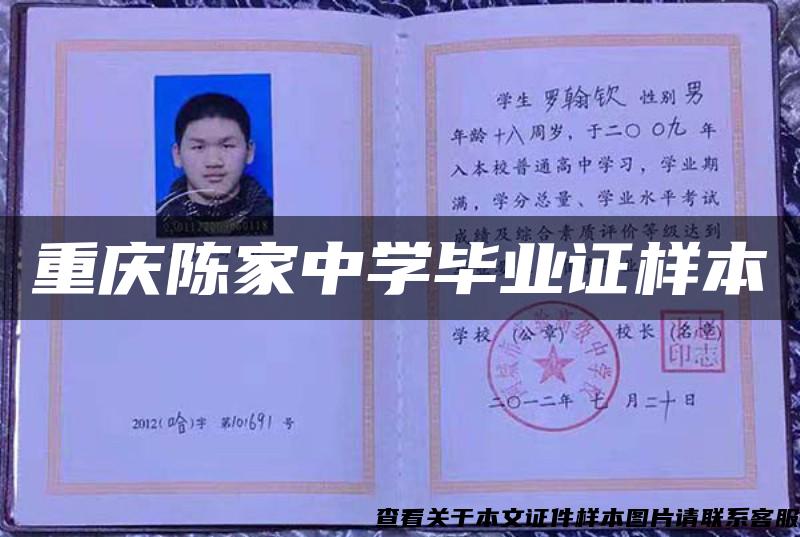 学生 罗翰钦 性别 男
年龄 十八 周岁，于二〇〇九 年
入本校普通高中学习，学业期
满，学分总量、学业水平考试
成绩及综合素质评价等级达到
重庆陈家中学毕业证样本
学校 (公章) 校长 (名章)
印志
二〇一二年 七 月二十日
2012(哈)字 第101691 号
查看关于本文证件样本图片请联系客服